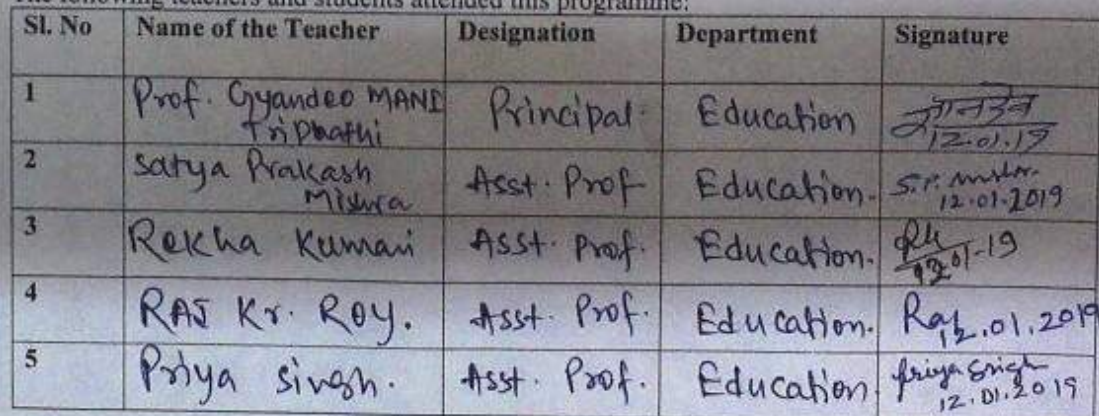 The following teachers and students attended this programme:
Sl. No Name of the Teacher Designation Department Signature
1 Prof. Gyandeo MANI Tripathi Principal Education ज्ञानदेव 12.01.19
2 Satya Prakash Mishra Asst. Prof Education. S.P. Mishra. 12.01.2019
3 Rekha Kumari Asst. Prof. Education. 12.01-19
4 RAJ Kr. ROY. Asst. Prof. Education. Raj 12.01.2019
5 Priya Singh. Asst. Prof. Education Priya Singh 12.01.2019